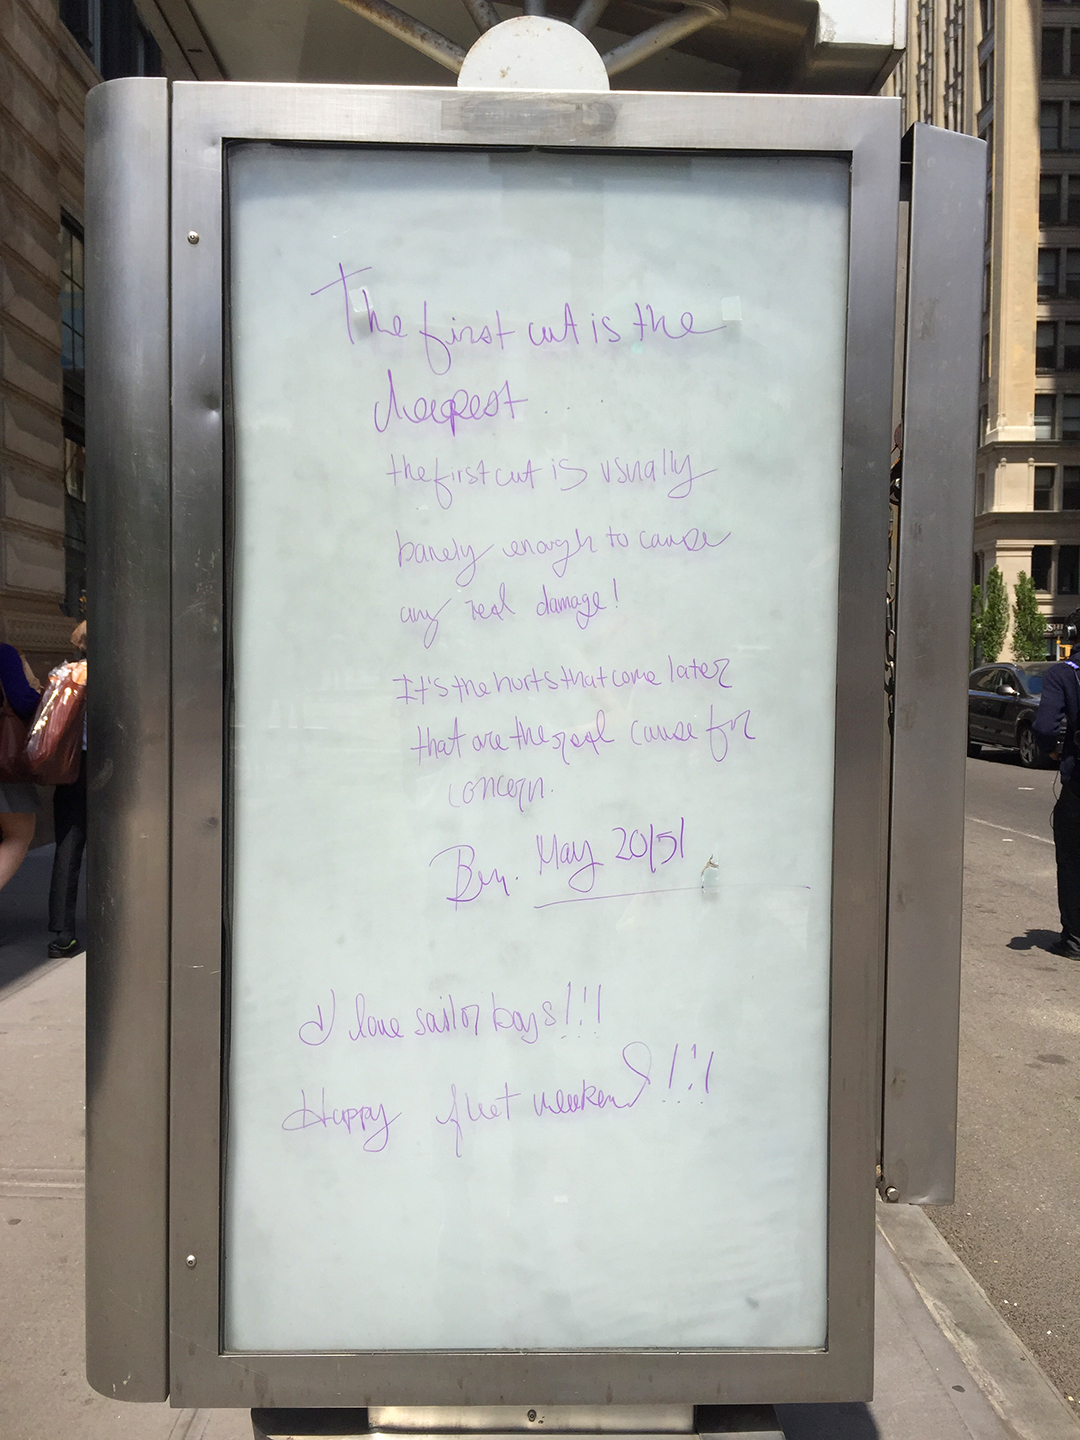 The first cut is the
deepest ....
the first cut is usually
barely enough to cause
any real damage!
It's the hurts that come later
that are the real cause for
concern.
Ben. May 20151
I love sailor boys!!!
Happy fleet weekend!!!